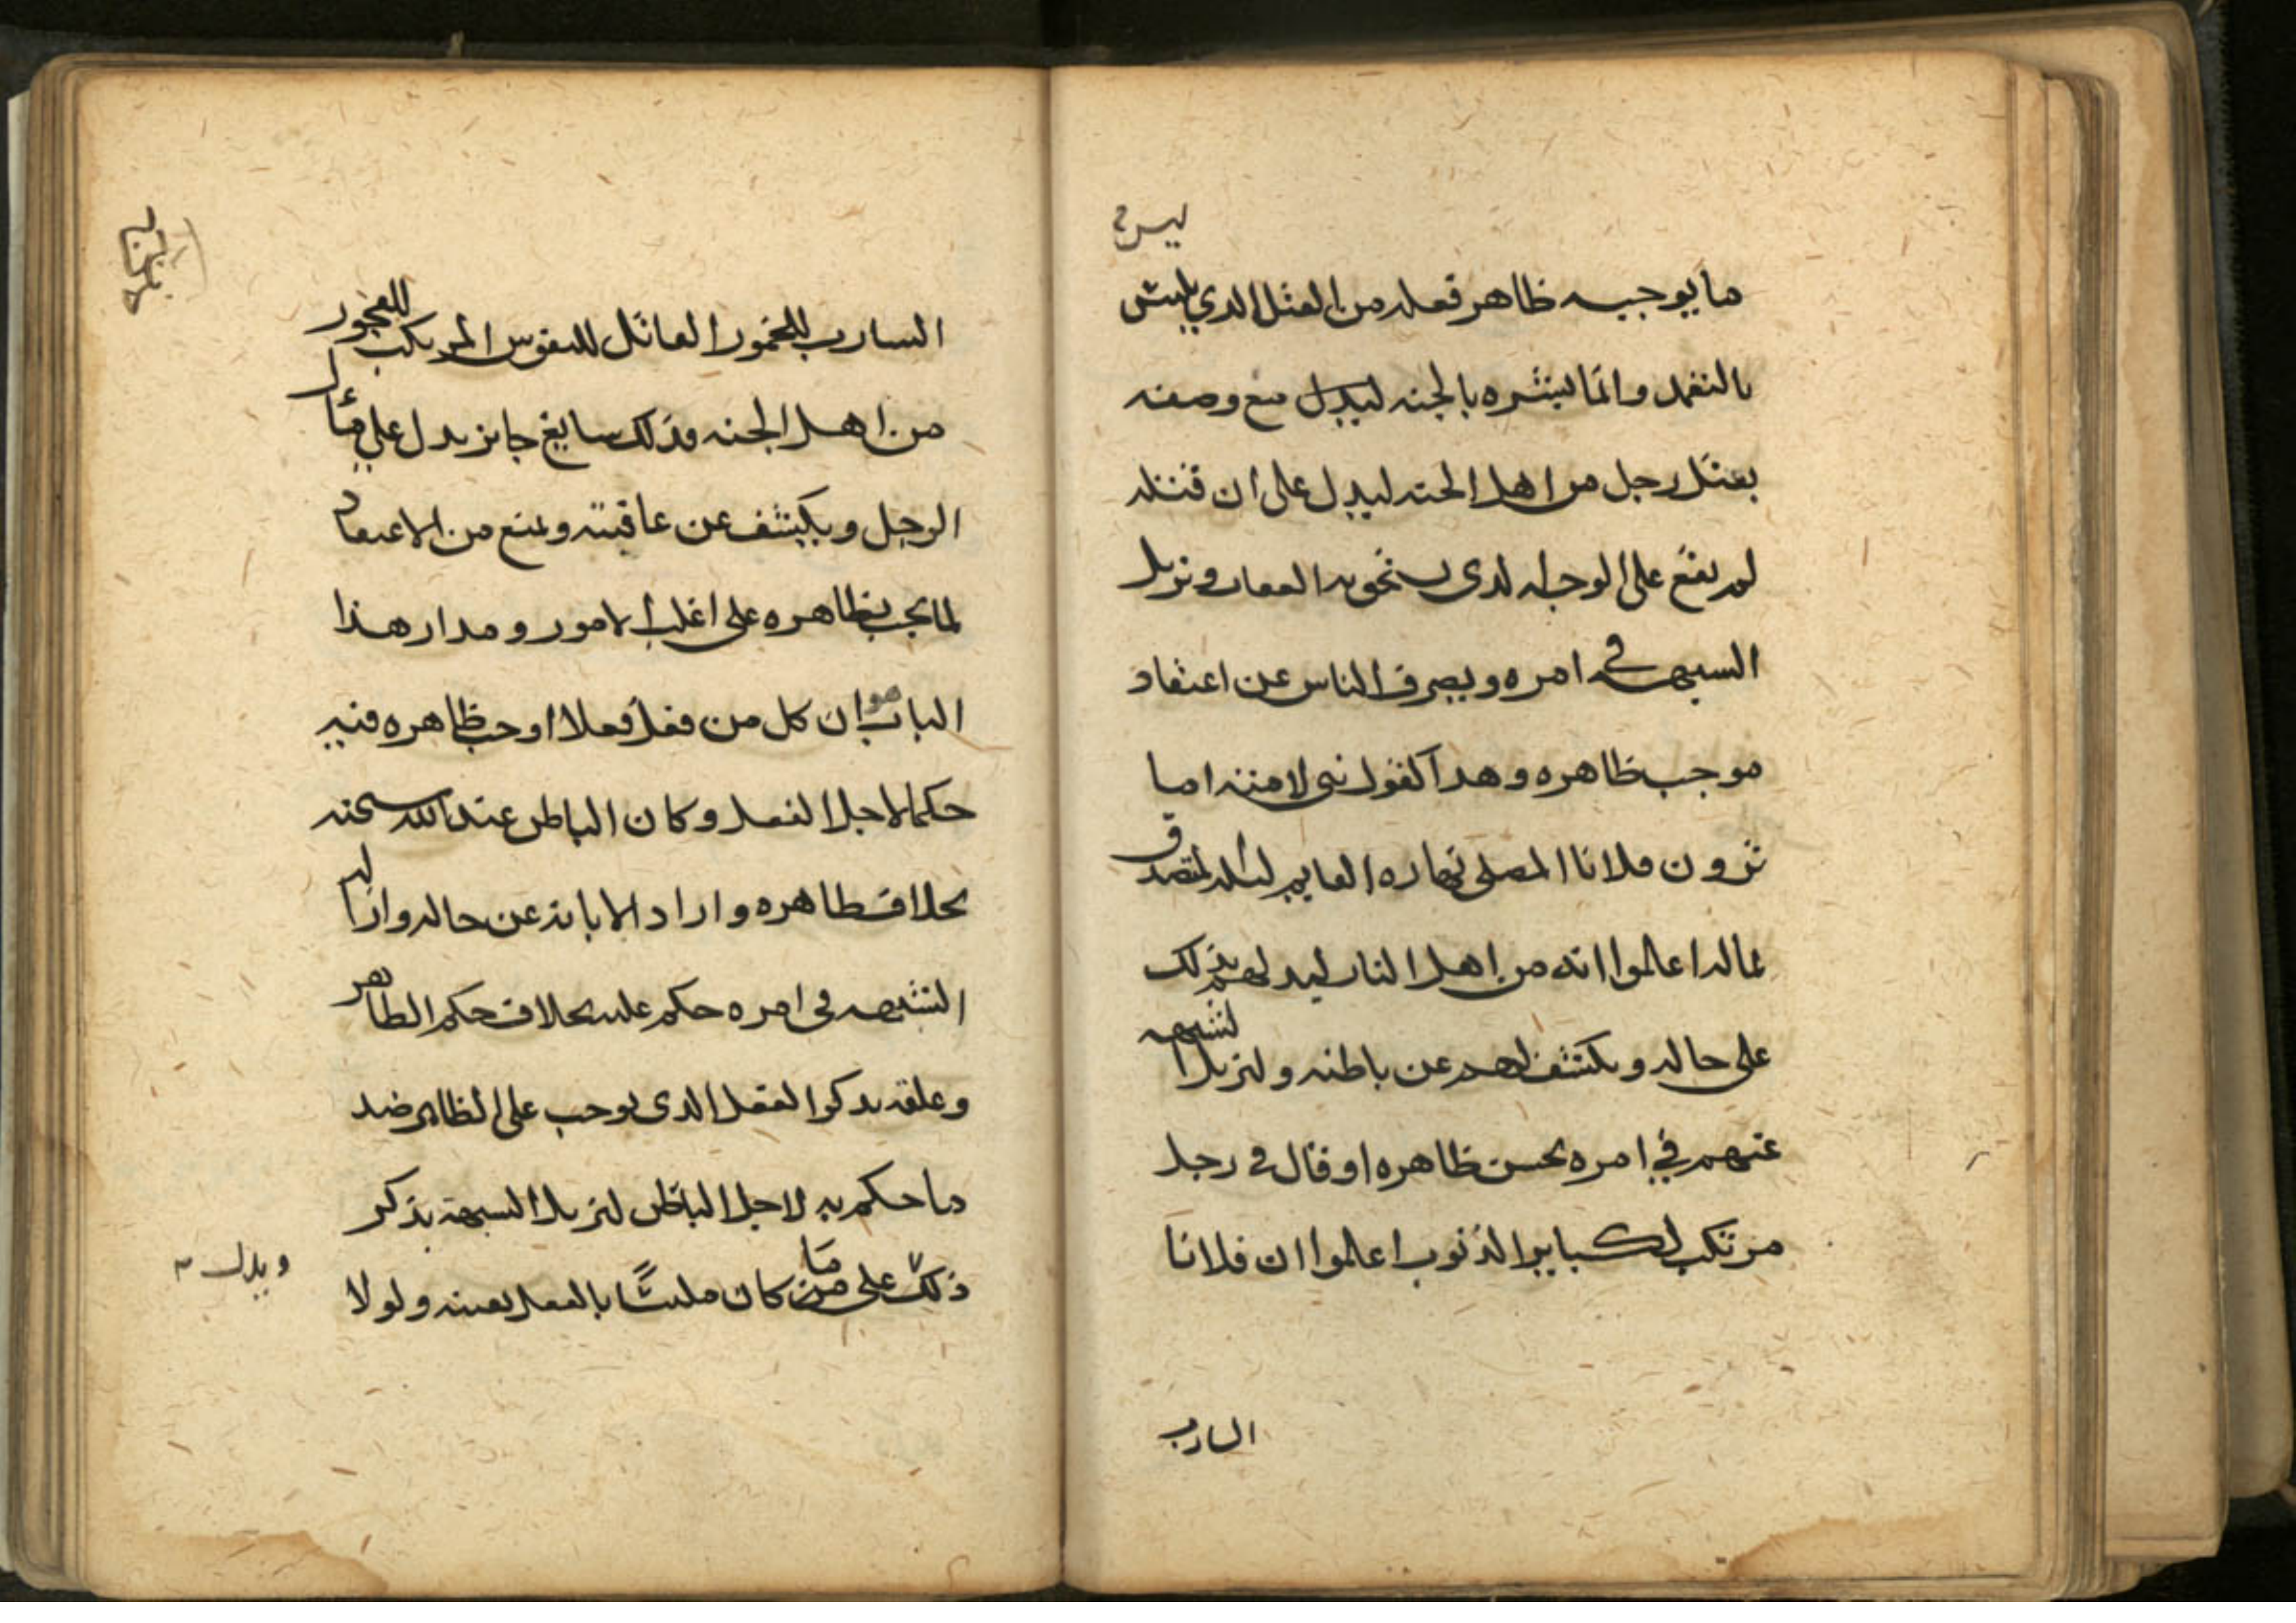 ليس
ما يوجبه ظاهر فعله من القتل الذي يلبس
بالتعمد وانما يبشره بالجنه ليدل مع وصفه
بقتل رجل من اهل الجنه ليدل على ان قتله
لم يقع على الوجه الذى يستحق به العقاب ويزيل
الشبهه في امره ويصرف الناس عن اعتقاد
موجب ظاهره وهذا كقول نبي لامته اما
ترون فلانا المصلى نهاره القايم ليله المتصدق
بماله اعلموا انه من اهل النار ليدلهم بذلك
على حاله ويكشف لهم عن باطنه وليزيل الشبهه
عنهم في امره بحسن ظاهره او قال في رجل
مرتكب لكباير الذنوب اعلموا ان فلانا
الشارب
الشارب للخمور القاتل للنفوس المرتكب للفجور
من اهل الجنه وذلك سايغ جايز يدل على مآل
الرجل ويكشف عن عاقبته ويمنع من الاعتقاد
لما يجب بظاهره على اغلب الامور ومدار هذا
الباب هو ان كل من فعل فعلا اوجب ظاهره فيه
حكما لاجل الفعل وكان الباطن عند الله سبحنه
بخلاف ظاهره واراد الابانه عن حاله وازاله
الشبهه فى امره حكم عليه بخلاف حكم الظاهر
وعلقه بذكر الفعل الذى يوجب على الظاهر ضد
ما حكم به لاجل الباطن ليزيل الشبهه بذكر
ذلك على من ما كان ملبسًا بالفعل بعينه ولولا
ويدل